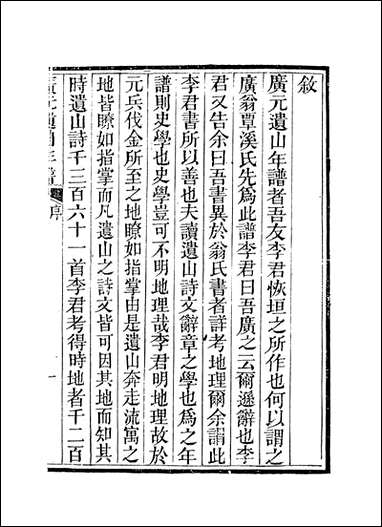 敘
廣元遺山年譜者吾友李君恢垣之所作也何以謂之
廣翁覃溪氏先為此譜李君曰吾廣之云爾遜辭也李
君又告余曰吾書異於翁氏書者詳考地理爾余謂此
李君書所以善也夫讀遺山詩文辭章之學也為之年
譜則史學也史學豈可不明地理哉李君明地理故於
元兵伐金所至之地瞭如指掌由是遺山奔走流寓之
地皆瞭如指掌而凡遺山之詩文皆可因其地而知其
時遺山詩千三百六十一首李君考得時地者千二百
廣元遺山年譜 序 一